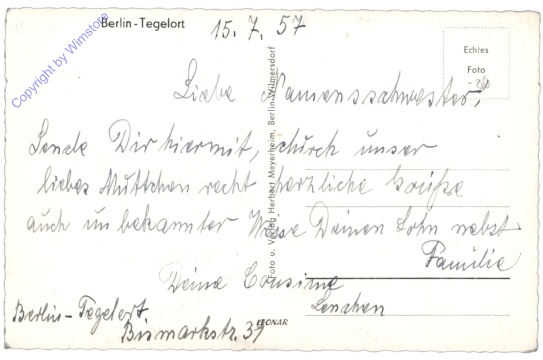 Berlin-Tegelort
15. 7. 57
Echtes
Foto
Copyright by Wimstore
Liebe Namensschwester,
Sende Dir hiermit, durch unser
liebes Muttchen recht herzliche Grüße
auch unbekannter Weise Deinen Sohn nebst
Familie
Deine Cousine
Lenchen
Berlin-Tegelort
Bismarkstr. 39
Foto u. Verlag Herbert Meyerheim, Berlin-Wilmersdorf
LEONAR